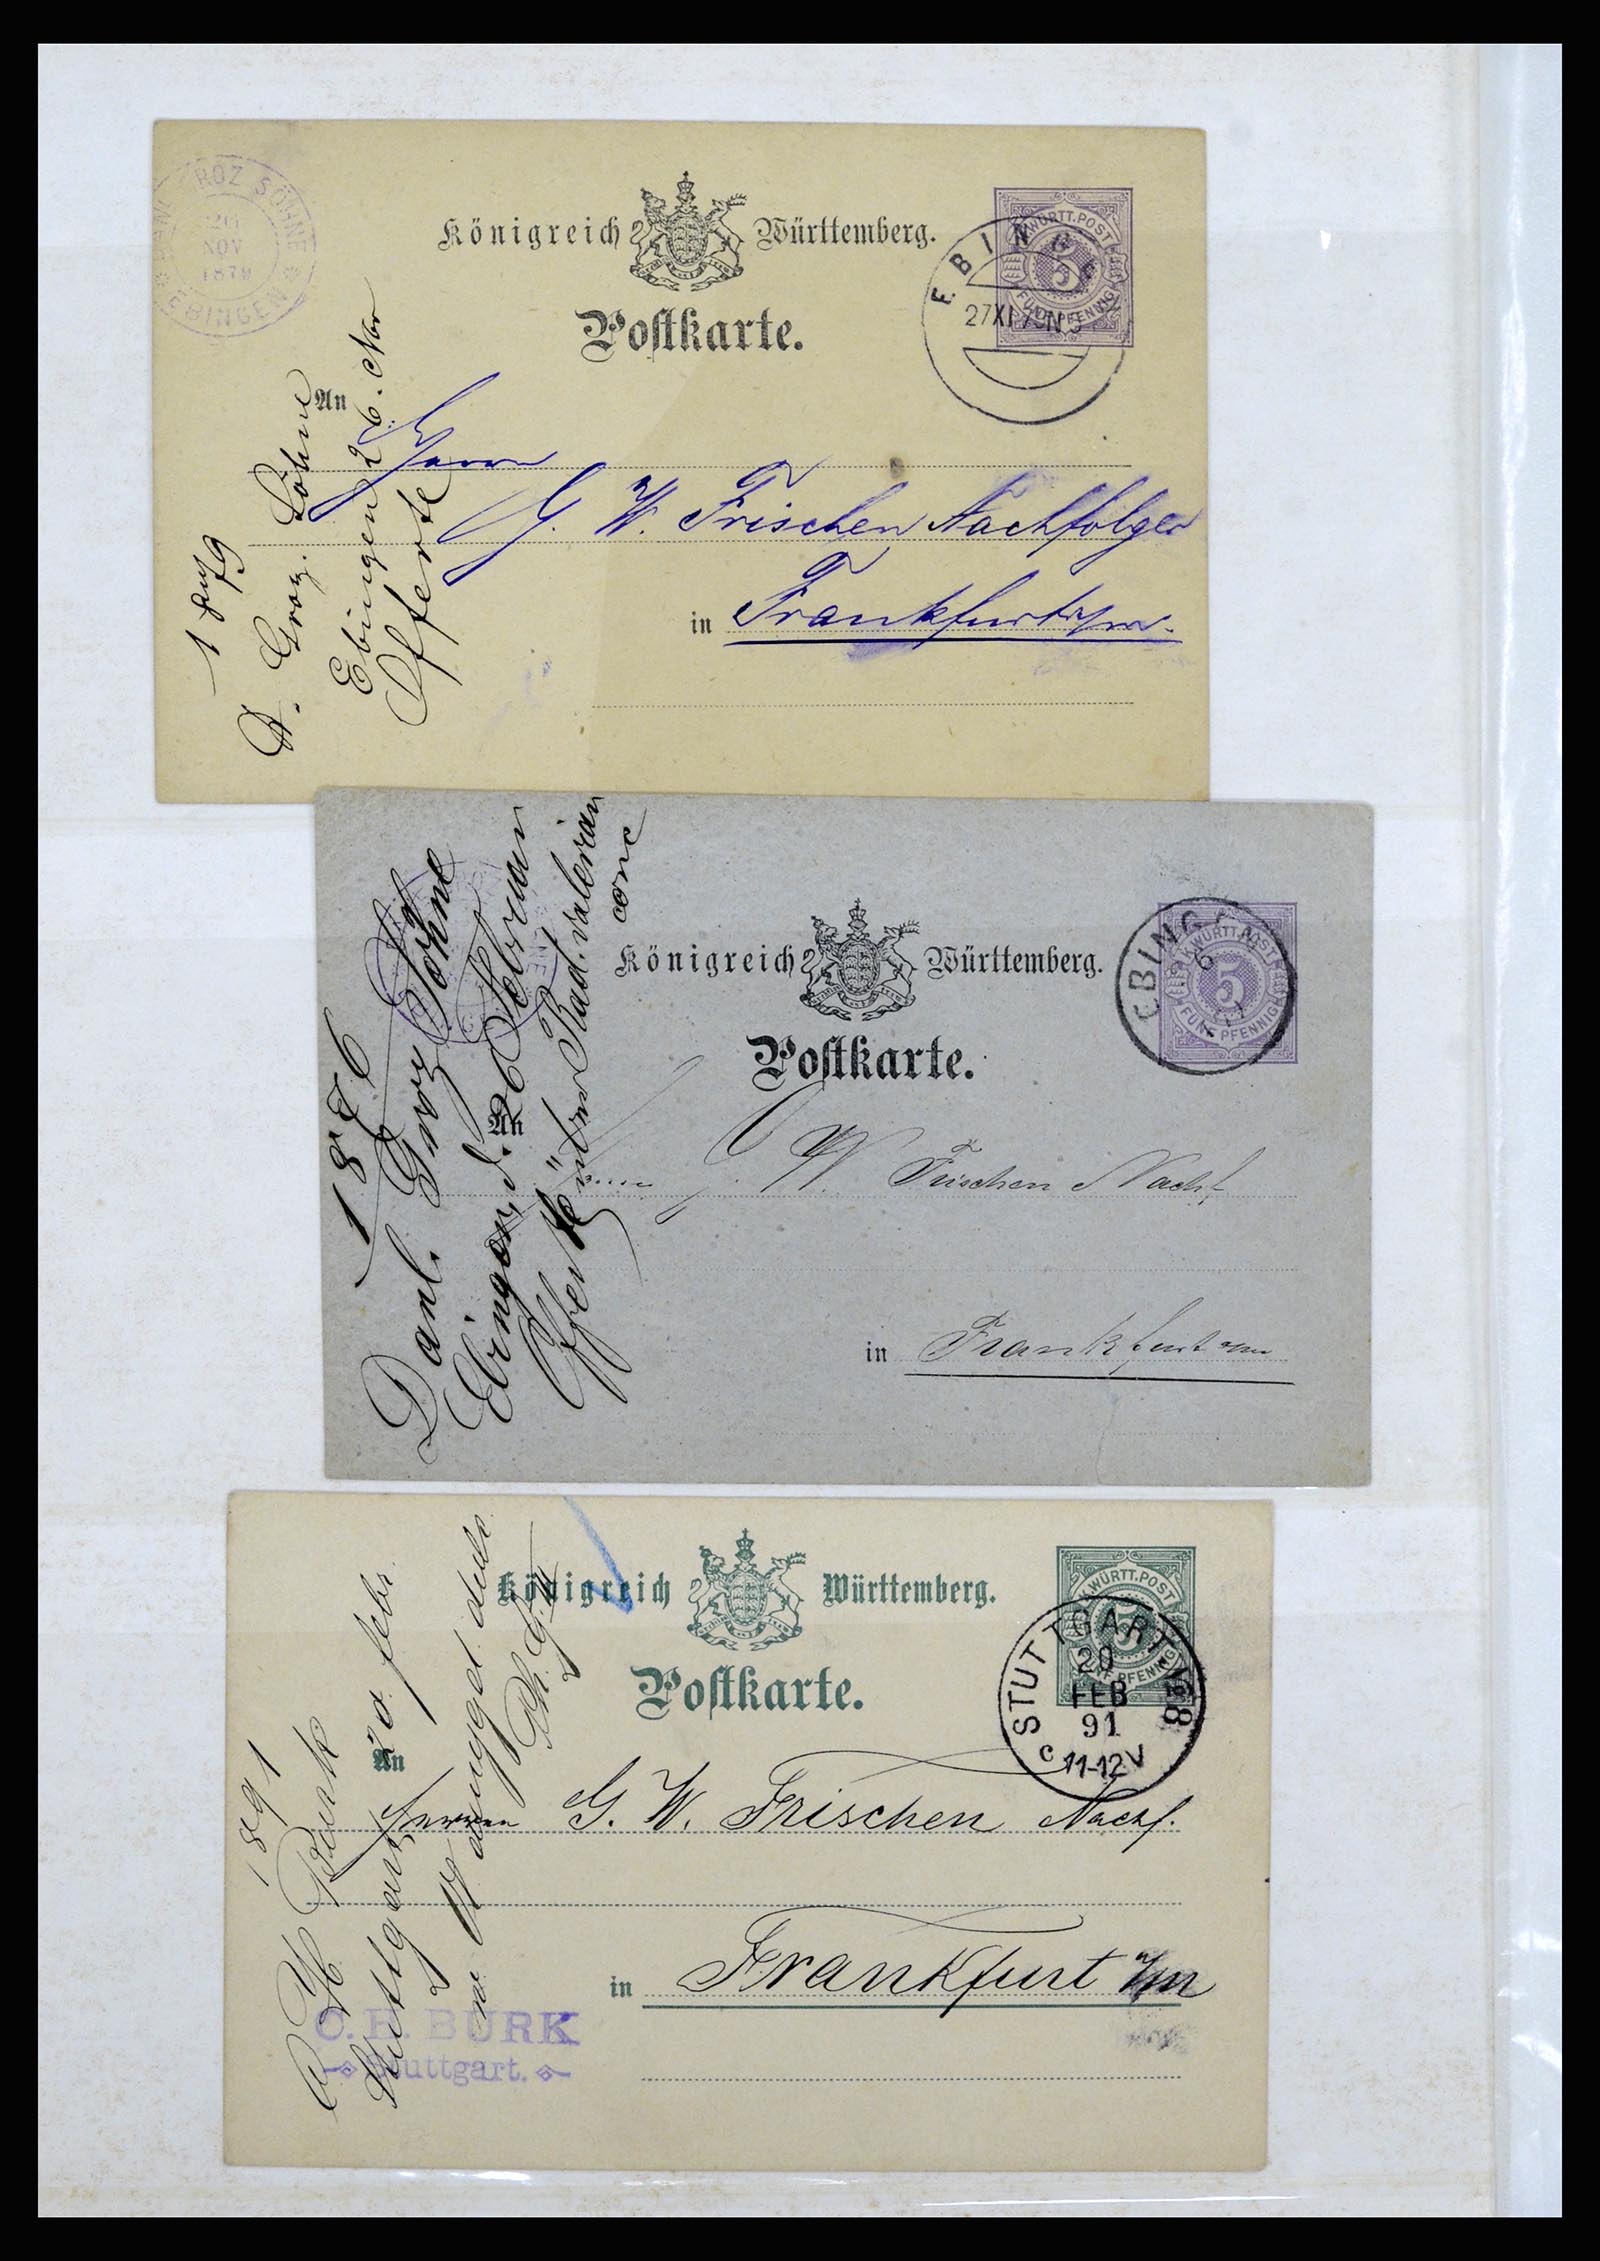 GROZ SÖHNE
NOV
1879
EBINGEN
Königreich Württemberg.
Postkarte.
K.WÜRTT.POST
5
FÜNF PFENNIG
EBINGEN
27XI
An
Herrn
G. W. Frischen Nachfolger
in Frankfurt
1879
D. Groz. Söhne
Ebingen 26. Nbr
Offerte
Königreich Württemberg.
Postkarte.
K.WÜRTT.POST
5
FÜNF PFENNIG
EBINGEN
An
G. W. Frischen Nachf.
in Frankfurt
Danl. Groz Söhne
Ebingen d. 26 Februar
Offerte über Rad. valerian
conc
Königreich Württemberg.
Postkarte.
K.WÜRTT.POST
5
FÜNF PFENNIG
STUTTGART
20
FEB
91
11-12V
C
An
Herren G. W. Frischen Nachf.
in Frankfurt a/m
1891
C H Burk
Stuttgart 20 febr.
C. H. BURK
Stuttgart.